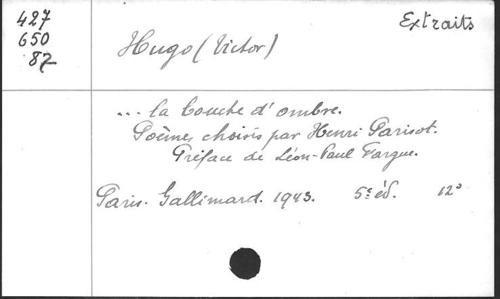 427
650
87
Extraits
Hugo (Victor)
... la bouche d'ombre.
Poèmes choisis par Henri Parisot.
Préface de Léon-Paul Fargue.
Paris. Gallimard. 1943. 5e éd. 12°